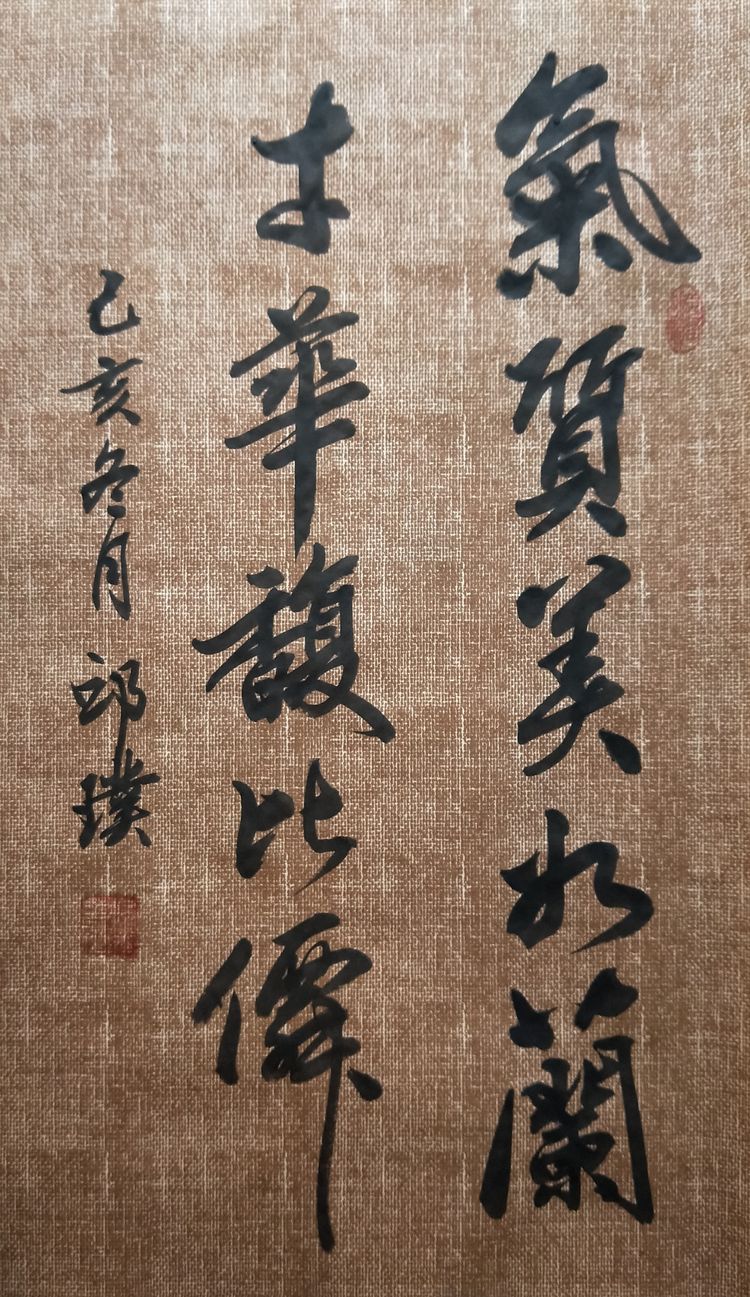 氣質美如蘭
才華馥比僊
己亥冬月 邱璞